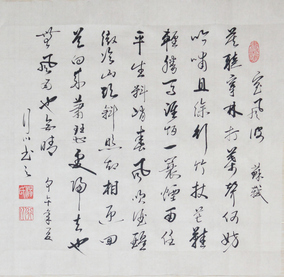 定風波 蘇軾
莫聽穿林打葉聲何妨
吟嘯且徐行竹杖芒鞋
輕勝馬誰怕一蓑煙雨任
平生料峭春風吹酒醒
微冷山頭斜照却相迎回
首向來蕭瑟處歸去也
無風雨也無晴
甲午年夏